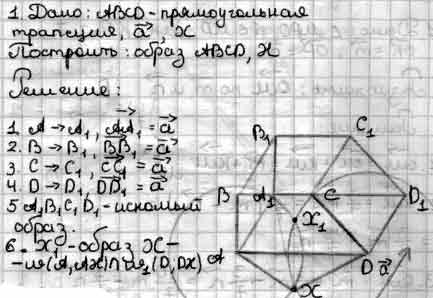 1. Дано: ABCD - прямоугольная
трапеция, a, X
Построить: образ ABCD, X
Решение:
1. A → A₁, AA₁ = a
2. B → B₁, BB₁ = a
3. C → C₁, CC₁ = a
4. D → D₁, DD₁ = a
5 A₁B₁C₁D₁ - искомый
образ.
6. X₁ - образ X -
(A, AX) ∩ (D, DX)
B₁ C₁
B A₁ C D₁
X₁
A D a
X